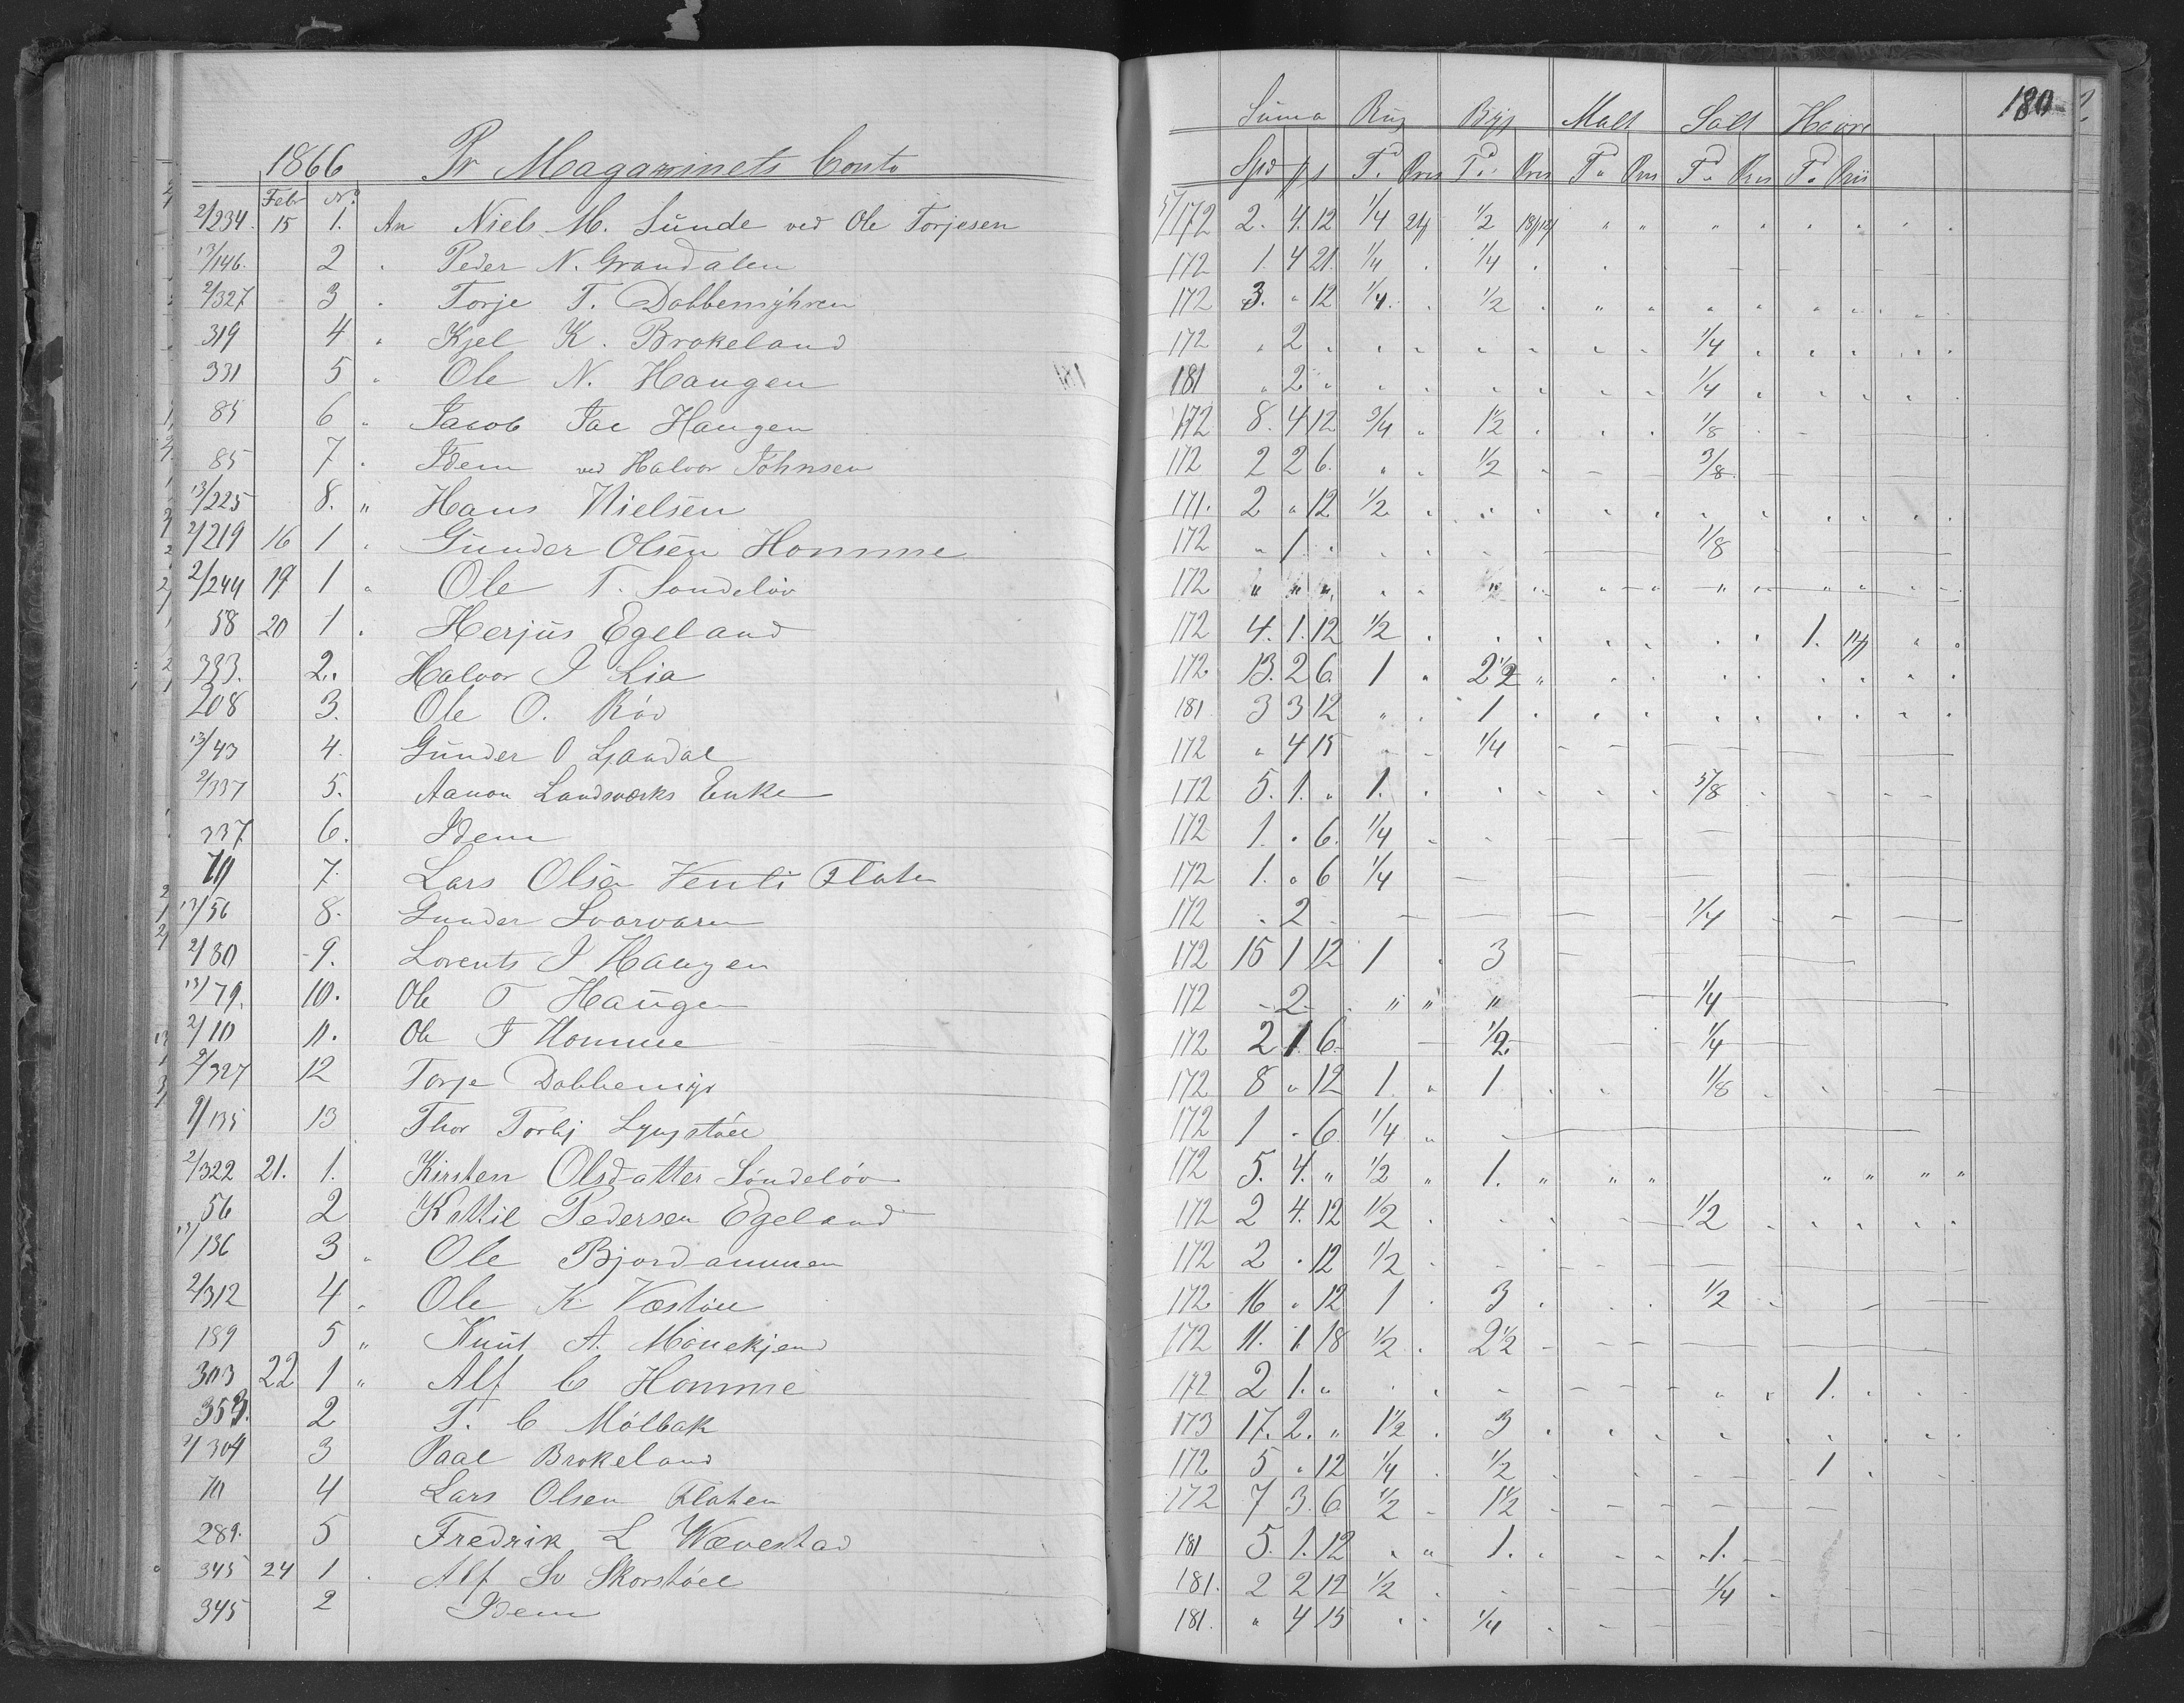 Suma Rug Byg Malt Salt Havre 180
1866 Pr Magazinets Conto
Febr No Spd ß Td Pris Td Pris Td Pris Td Pris Td Pris
2/234. 15 1. An Niels M. Sunde ved Ole Torjesen 5/172 2. 4. 12 1/4 1/2 " " " " " " " "
13/146. 2 " Peder N. Grandalen 172 1. 4 21. 1/4 . 1/4 .
2/327 3 " Torje T. Dobbemyhren 172 3. " 12 1/4 . 1/2 . " " " " " "
319 4 " Kjel K. Brokeland 172 " 2 " " " " " " " 1/4 " " " "
331 5 " Ole N. Haugen 181 " 2 " " " " " " " 1/4 " " " "
85 6 " Jacob Jac Haugen 172 8. 4 12 3/4 " 1 1/2 " " " 1/8
85 7 " Idem ved Halvor Johnsen 172 2 2 6. " " 1/2 " - - 3/8
13/225 8. " Hans Nielsen 171. 2 " 12 1/2 " " " " " " " " " "
2/219 16 1 " Gunder Olsen Homme 172 " 1 " " " " 1/8
2/244 19 1 " Ole T. Sondeløv 172 " " " " " " " " " " " " "
58 20 1 " Herjus Egeland 172 4. 1. 12 1/2 " " " " " " " 1.
333. 2. Halvor J Lia 172 13. 2 6 1 " 2 1/2 " " " " " " "
208 3. Ole O. Röd 181 3 3 12 " " 1 " " " " " " "
13/43 4. Gunder O Ljaadal 172 " 4 15 " - 1/4 - - - -
2/337 5. Aanon Landsværks Enke 172 5. 1. " 1. " " " " " 5/8 - - -
337 6. Idem 172 1. " 6. 1/4 - -
70 7. Lars Olsen Venli Flaten 172 1. " 6 1/4
13/56 8. Gunder Svarvaren 172 - 2 - - - - 1/4
2/80 9. Lorents J Haugen 172 15 1 12 1 " 3
13/79. 10. Ole T Haugen 172 - 2 - " " " 1/4
2/10 11. Ole T Homme 172 2 1 6. - 1/2 - 1/4
2/327 12 Torje Dobbemyr 172 8 " 12 1 " 1 " " 1/8
2/135 13 Thor Torbj Lyngstöll 172 1 - 6 1/4 "
2/322 21. 1. Kirsten Olsdatter Söndelöv 172 5. 4. " 1/2 " 1. " " " " " " "
56 2 Kittil Pedersen Egeland 172 2 4. 12 1/2 " " " " - 1/2 " " " "
13/136 3 " Ole Bjordammen 172 2 " 12 1/2 -
2/312 4 " Ole K Væstöll 172 16 " 12 1 " 3 " " " 1/2
189 5 " Knut A. 172 11. 1. 18 1/2 . 2 1/2 - - -
303 22 1 " Alf C Homme 172 2 1. " " " - - - - " " 1. " "
353. 2 T. C Mölbak 173 17. 2. " 1 1/2 . 3 " " " " " " "
2/304 3 Paal Brokeland 172 5 " 12 1/4 . 1/2 . " " 1 .
70 4 Lars Olsen Flaten 172 7 3. 6 1/2 - 1 1/2 - - -
289. 5 Fredrik L Wævestad 181 5. 1. 12 " " 1. " " " 1. -
345 24 1 " Alf Sv Skorstöll 181. 2 2 12 1/2 " - 1/4 -
345 2 Idem 181. " 4 15 " " 1/4 - - -